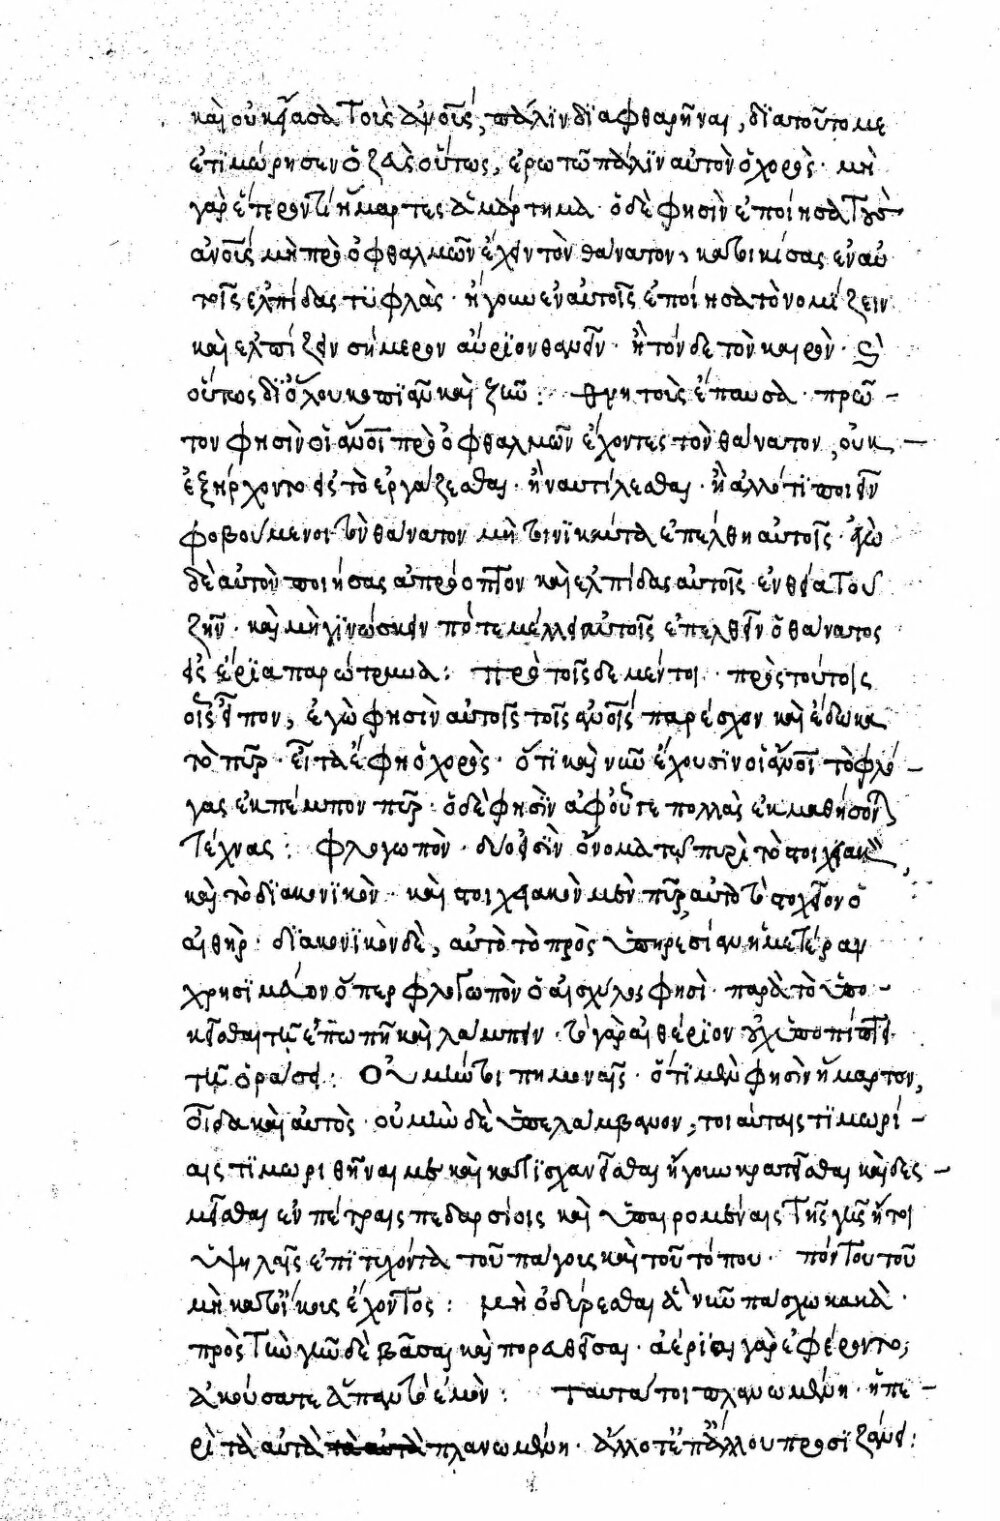 καὶ οὐκ εἴασα τοὺς ἀνοὺς, πάλιν διαφθαρῆναι, διατοῦτο με
ἐτιμώρησεν ὁ ζεὺς οὕτως, ἐρωτᾶ πάλιν αὐτὸν ὁ χορὸς · μὴ
γὰρ ἕτερον τί ἥμαρτες ἁμάρτημα · ὁ δὲ φησὶν ἐποίησα τοὺς
ἀνοὺς μὴ πρὸ ὀφθαλμῶν ἔχειν τὸν θάνατον, κατοικίσας ἐν αὐ
τοῖς ἐλπίδας τυφλὰς · ἤγουν ἐν αὐτοῖς ἐποίησα τὸ νομίζειν
καὶ ἐλπίζειν σήμερον αὔριον θανεῖν · ἢ τόνδε τὸν καιρὸν ·
οὕτως διόλου κοπιᾶν καὶ ζῆν : θνητοὺς ἔπαυσα · πρῶ –
τον φησὶν οἱ ἀνοὶ πρὸ ὀφθαλμῶν ἔχοντες τὸν θάνατον, οὐκ –
ἐξήρχοντο εἰς τὸ ἐργάζεσθαι · ἢ ναυτίλεσθαι · ἢ ἄλλό τι ποιεῖν
φοβούμενοι τὸν θάνατον μὴ τηνικαῦτα ἐπέλθη αὐτοῖς · ἐγὼ
δὲ αὐτὸν ποιήσας ἀπρόοπτον καὶ ἐλπίδας αὐτοῖς ἐνθεὶς τοῦ
ζῆν · καὶ μὴ γινώσκειν πότε μέλλει αὐτοῖς ἐπελθεῖν ὁ θάνατος
εἰς ἔργα παρώτρυνα : πρὸς τοῖσδε μέντοι · πρὸς τούτοις
οἷς εἶπον, ἐγὼ φησὶν αὐτοῖς τοῖς ἀνοῖς παρέσχον καὶ ἔδωκα
τὸ πῦρ · εἶτα ἔφη ὁ χορὸς · ὅτι καὶ νῦν ἔχουσιν οἱ ἀνοὶ τὸ φλό –
γας ἐκπέμπον πῦρ · ὁ δὲ φησὶν ἀφοὗτε πολλὰς ἐκμαθήσον
τέχνας : φλογωπὸν · δύο εἰσὶν ὀνόματα
καὶ τὸ διακονικὸν · καὶ στοιχειακὸν μὲν πῦρ αὐτὸ τὸ στοιχεῖον ὁ
αἰθὴρ · διακονικὸν δὲ, αὐτὸ τὸ πρὸς ὑπηρεσίαν ἡμετέραν
χρησιμεῦον ὅπερ φλογωπὸν ὁ αἰσχύλος φησὶ · παρὰ τὸ ὑπο –
κεῖσθαι τῆ ὀπωπῆ καὶ λάμπειν · τὸ γὰρ αἰθέριον οὐχ ὑποπίπτει
τῆ ὁράσει : οὐ μήν τοι πημοναῖς · ὅτι μὲν φησὶν ἥμαρτον,
οἶδα καὶ αὐτὸς · οὐ μὴν δὲ ὑπελάμβανον, τοιαύταις τιμωρί –
αις τιμωρηθῆναι με καὶ κατισχανεῖσθαι ἤγουν κρατεῖσθαι καὶ δεσ –
μεῖσθαι ἐν πέτραις πεδαρσίοις καὶ ὑπαιρομέναις τῆς γῆς ἤτοι
ὑψηλαῖς ἐπιτυχόντα τοῦ πάγοις καὶ τοῦ τόπου · πόντου τοῦ
μὴ κατοίκοις ἔχοντος : μὴ ὀδύρεσθαι ἃ νῦν πάσχω κακὰ ·
πρὸς τὴν γῆν δὲ βᾶσαι καὶ πορευθεῖσαι · ἀέριαι γὰρ ἐφέροντο,
ἀκούσατε ἅπαν τὸ ἐμὸν : ταῦτά τοι πλανωμένη · ἡ πε –
ρὶ τὰ αὐτὰ τὰ αὐτὰ πλανωμένη · ἄλλοτε πἄλλου προσιζάνει :